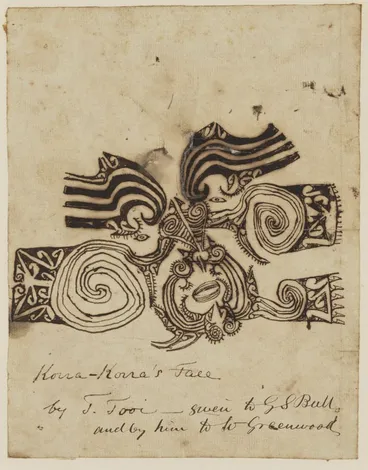 Korra-Korra's Face
by T. Tooi — given to G S Bull,
" and by him to W Greenwood